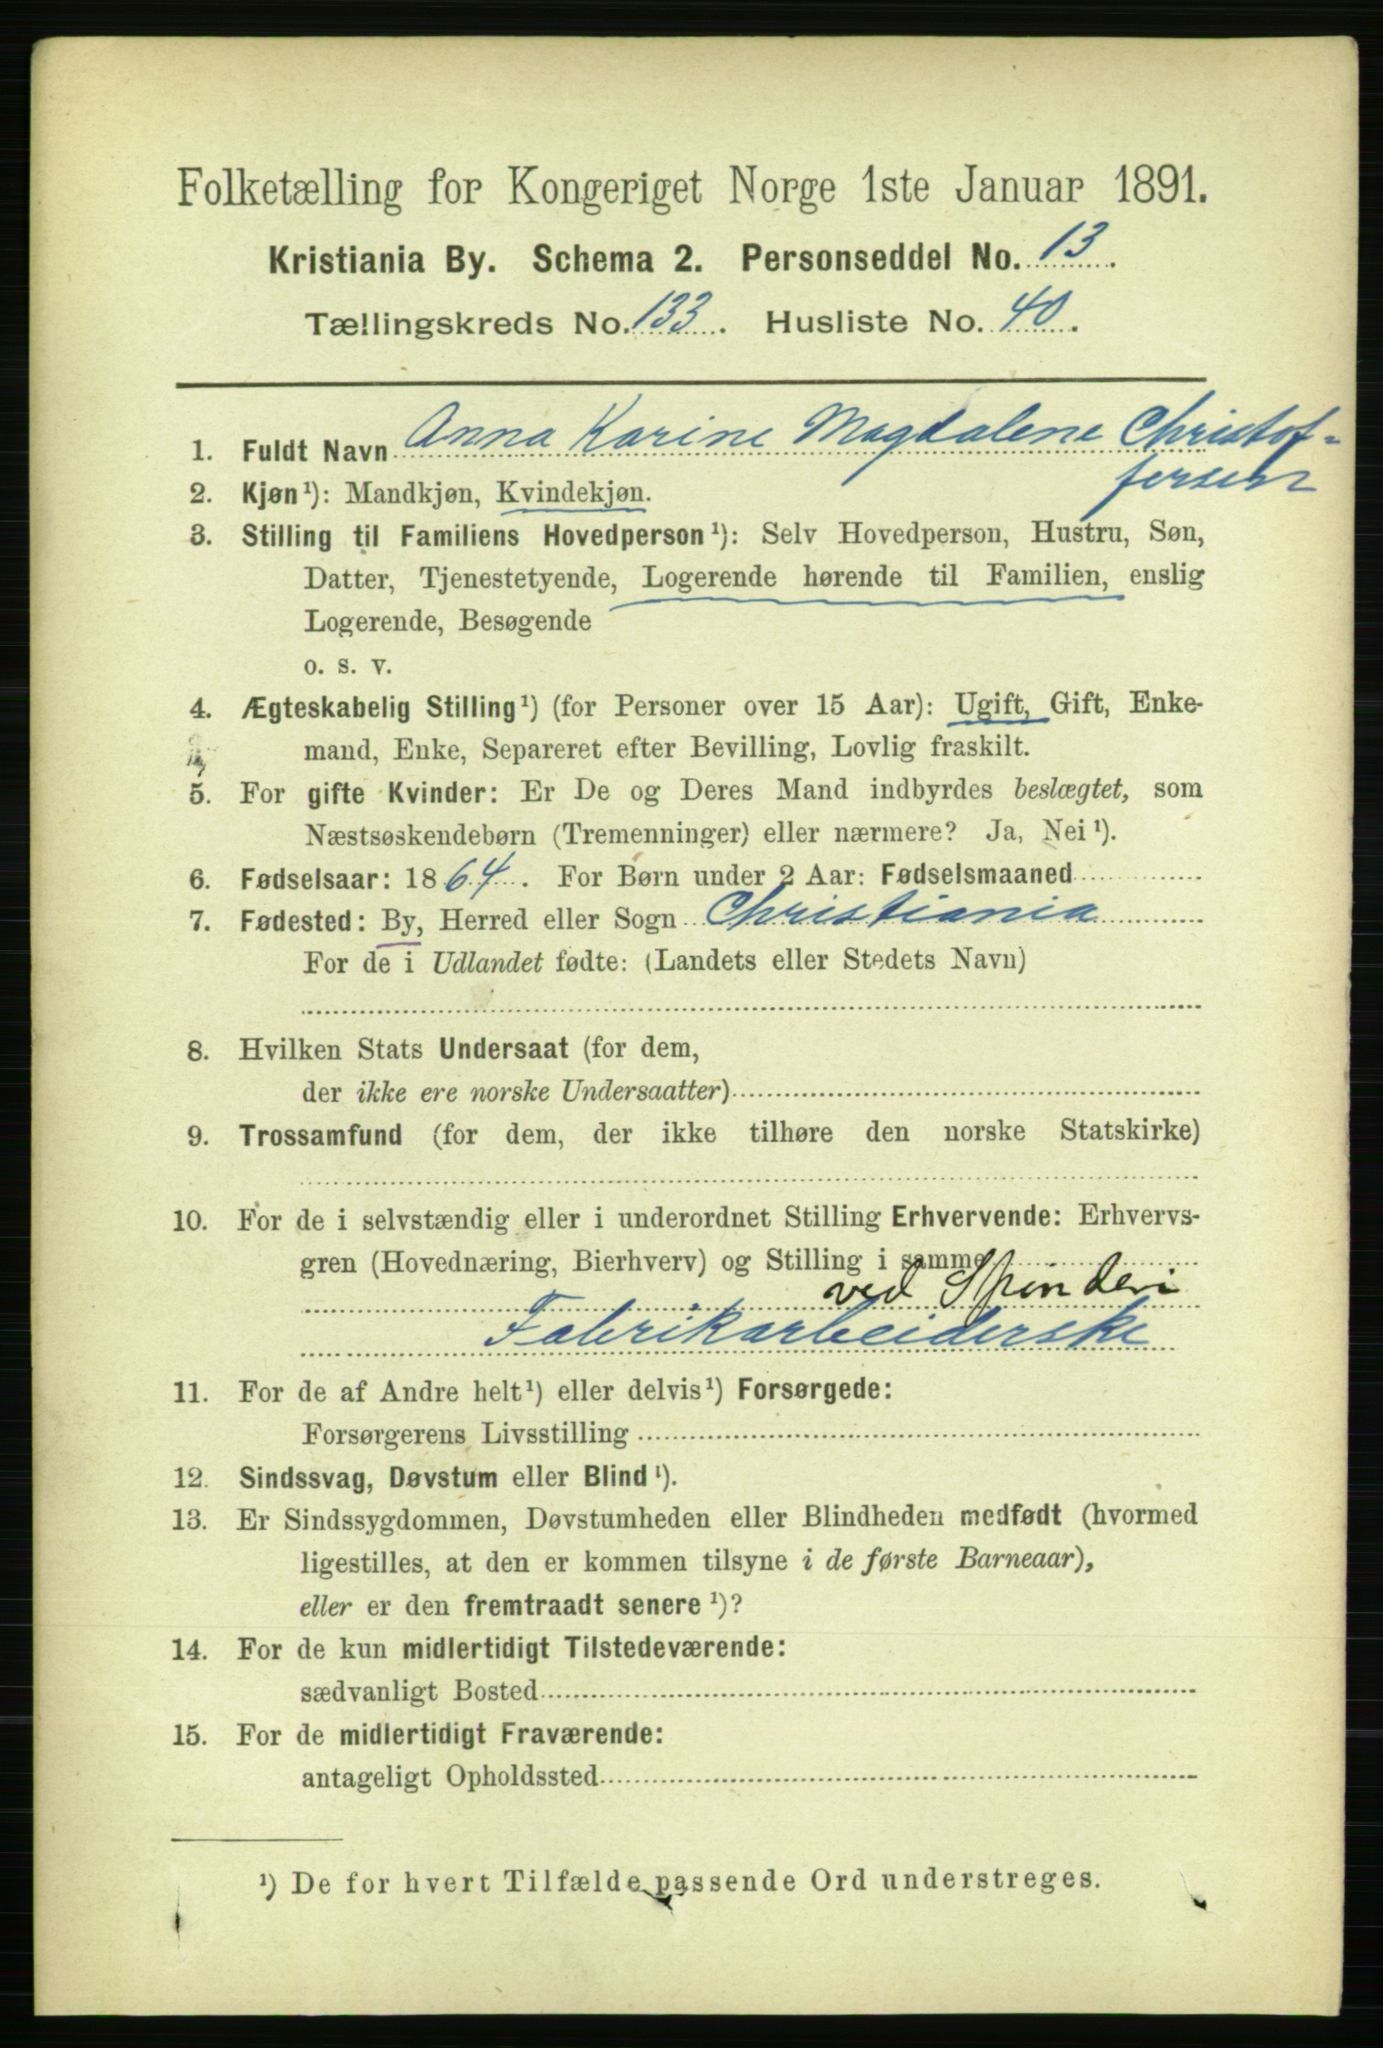 Folketælling for Kongeriget Norge 1ste Januar 1891.
Kristiania By. Schema 2. Personseddel No. 13.
Tællingskreds No. 133. Husliste No. 40.
1. Fuldt Navn Anna Karine Magdalene Christof-
fersen
2. Kjøn¹): Mandkjøn, Kvindekjøn.
3. Stilling til Familiens Hovedperson¹): Selv Hovedperson, Hustru, Søn,
Datter, Tjenestetyende, Logerende hørende til Familien, enslig
Logerende, Besøgende
o. s. v.
4. Ægteskabelig Stilling¹) (for Personer over 15 Aar): Ugift, Gift, Enke-
mand, Enke, Separeret efter Bevilling, Lovlig fraskilt.
5. For gifte Kvinder: Er De og Deres Mand indbyrdes beslægtet, som
Næstsøskendebørn (Tremenninger) eller nærmere? Ja, Nei¹).
6. Fødselsaar: 1864. For Børn under 2 Aar: Fødselsmaaned
7. Fødested: By, Herred eller Sogn Christiania
For de i Udlandet fødte: (Landets eller Stedets Navn)
8. Hvilken Stats Undersaat (for dem,
der ikke ere norske Undersaatter)
9. Trossamfund (for dem, der ikke tilhøre den norske Statskirke)
10. For de i selvstændig eller i underordnet Stilling Erhvervende: Erhvervs-
gren (Hovednæring, Bierhverv) og Stilling i samme
ved Spinderi
Fabrikarbeiderske
11. For de af Andre helt¹) eller delvis¹) Forsørgede:
Forsørgerens Livsstilling
12. Sindssvag, Døvstum eller Blind¹).
13. Er Sindssygdommen, Døvstumheden eller Blindheden medfødt (hvormed
ligestilles, at den er kommen tilsyne i de første Barneaar),
eller er den fremtraadt senere¹)?
14. For de kun midlertidigt Tilstedeværende:
sædvanligt Bosted
15. For de midlertidigt Fraværende:
antageligt Opholdssted
¹) De for hvert Tilfælde passende Ord understreges.